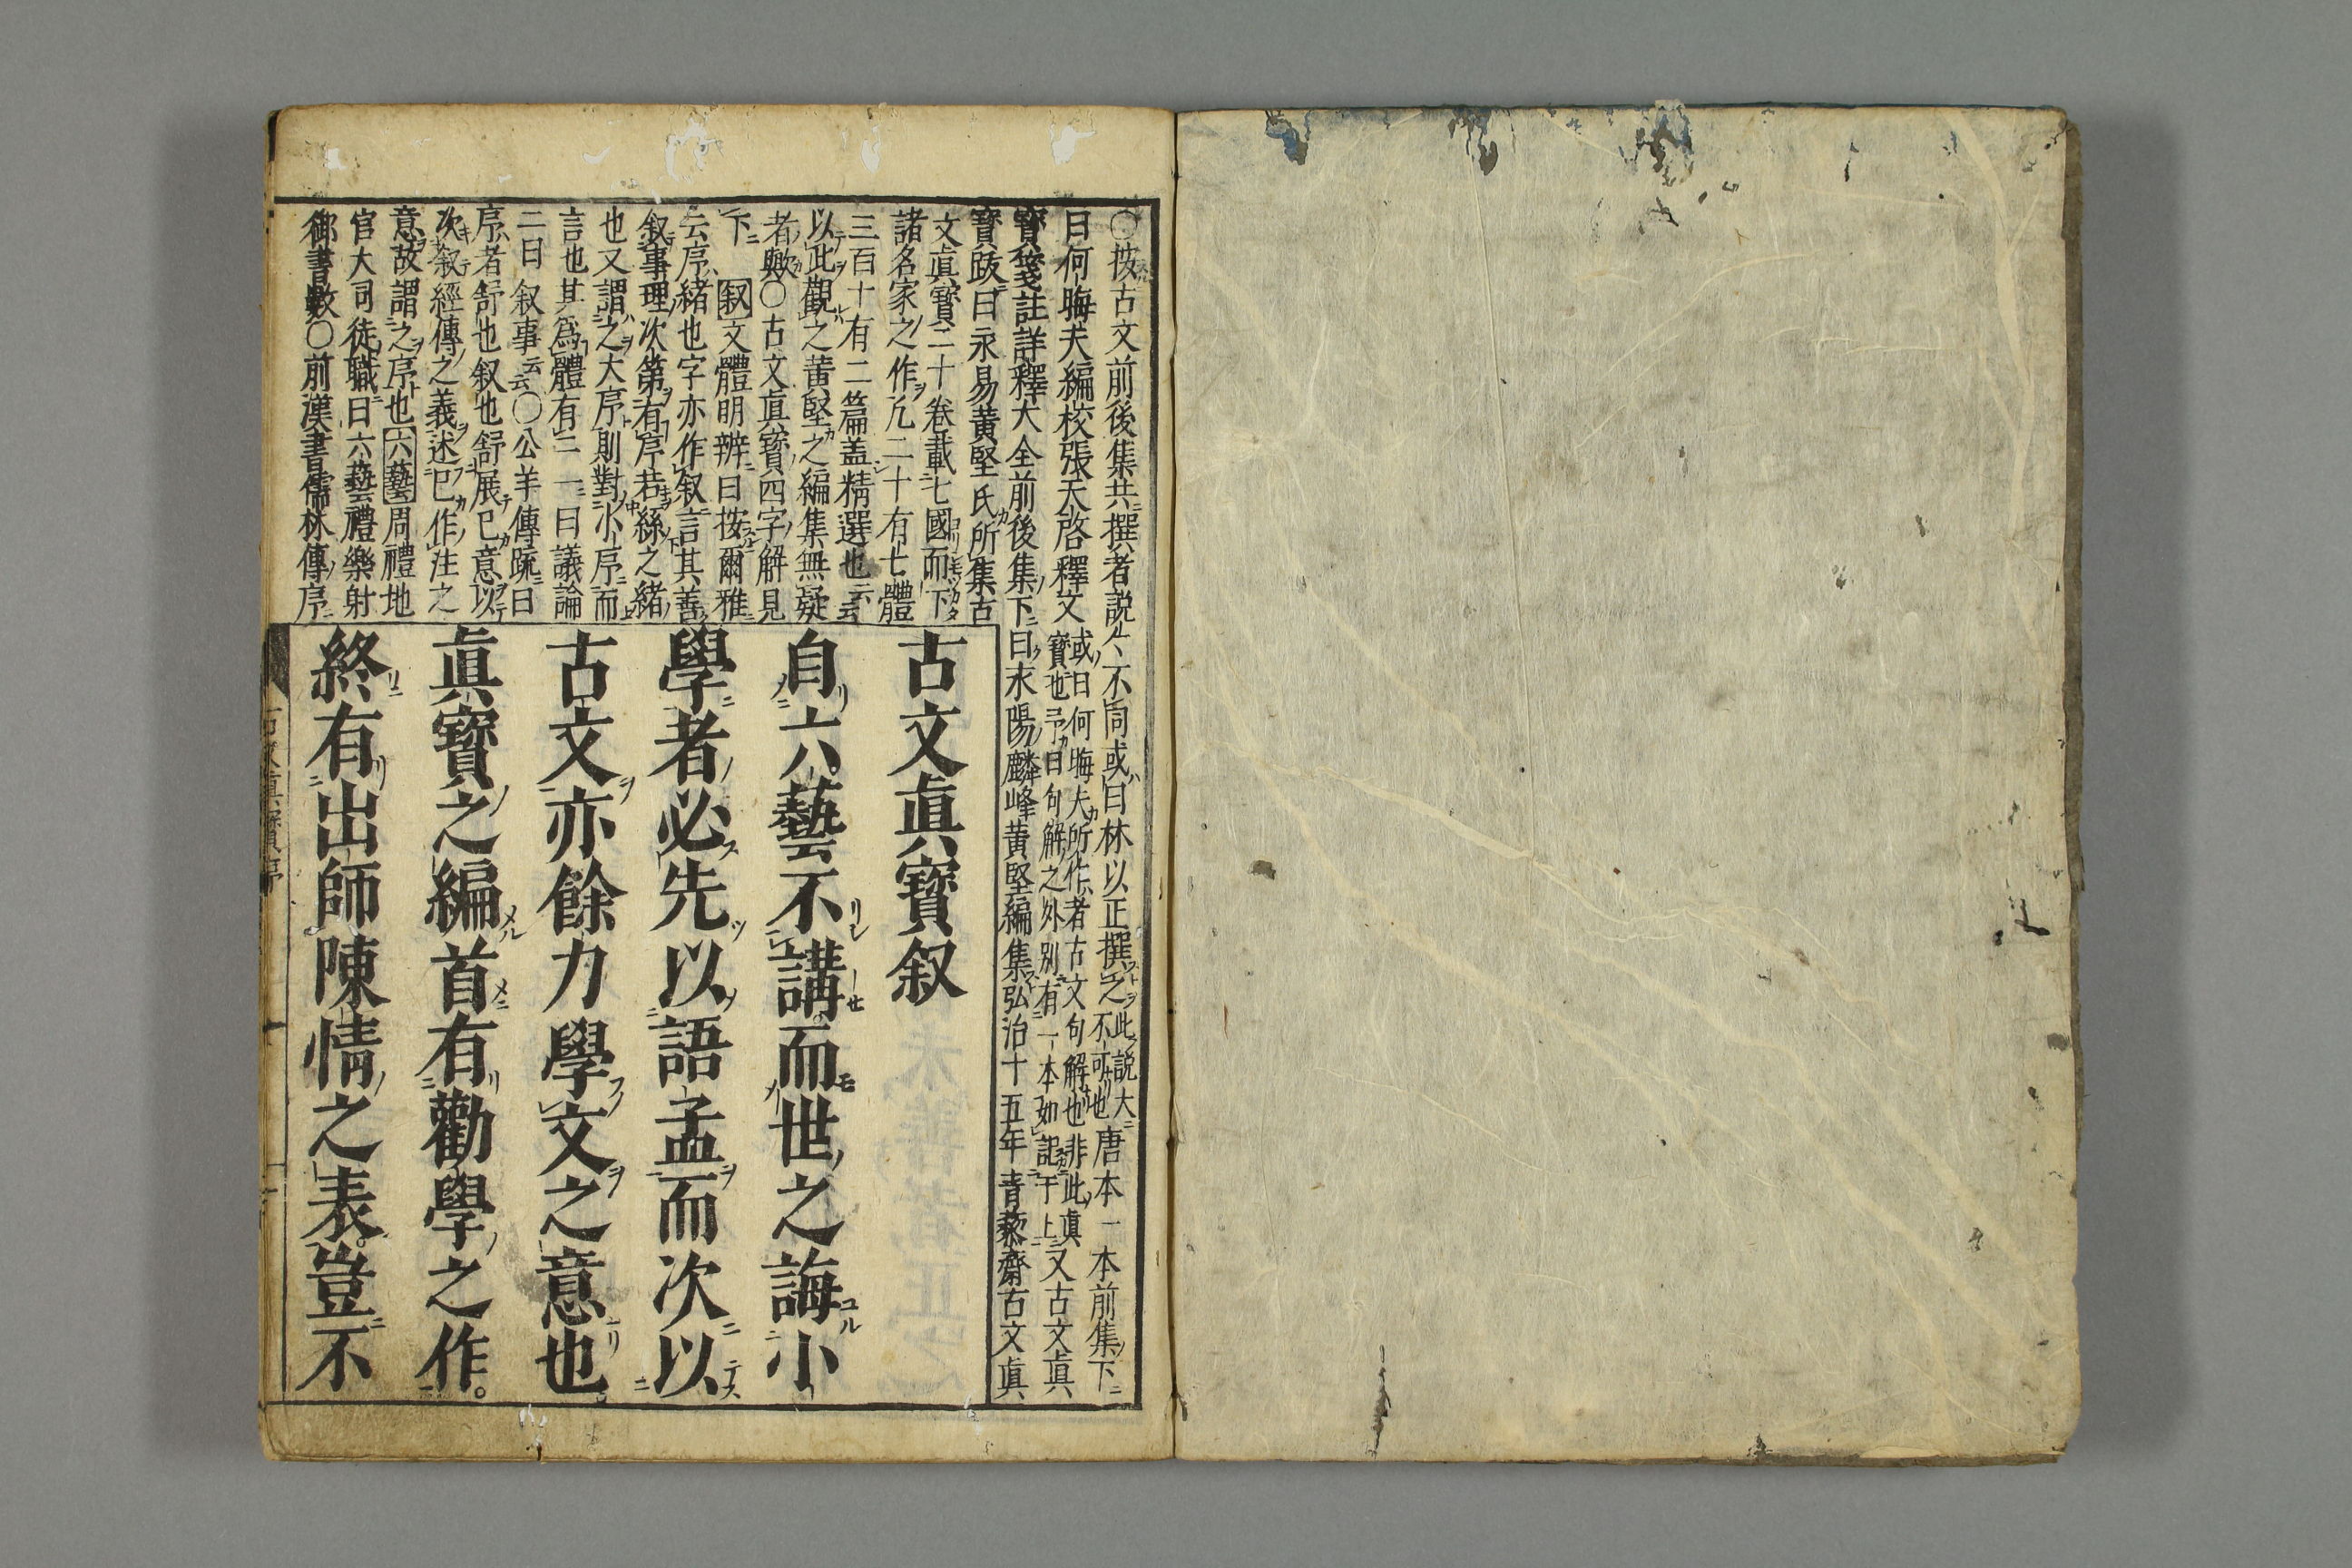 ○按古文前後集共撰者説〻不同或曰林以正撰之此説大
不可也唐本一本前集下
曰何晦夫編校張天啓釋文
或曰何晦夫所作者古文句解也非此眞
寶也予曰句解之外別有一本如記于上又古文眞
寶箋註詳釋大全前後集下曰永陽麟峰黄堅編集弘治十五年青藜齋古文眞
寶跋曰永易黄堅氏所集古
文眞寶二十卷載七國而下
諸名家之作凡二十有七體
三百十有二篇盖精選也云云
以此觀之黄堅之編集無疑
者歟○古文眞寶四字解見
下 叙文體明辨曰按爾雅
云序緒也字亦作叙言其善
叙事理次第有序若絲之緒
也又謂之大序則對小序而
言也其爲體有二一曰議論
二曰叙事云云○公羊傳疏曰
序者舒也叙也舒展己意以
次叙經傳之義述己作注之
意故謂之序也六藝周禮地
官大司徒職曰六藝禮樂射
御書數○前漢書儒林傳序
古文眞寶叙
自六藝不講而世之誨小
學者必先以語孟而次以
古文亦餘力學文之意也。
眞寶之編首有勸學之作。
終有出師陳情之表。豈不